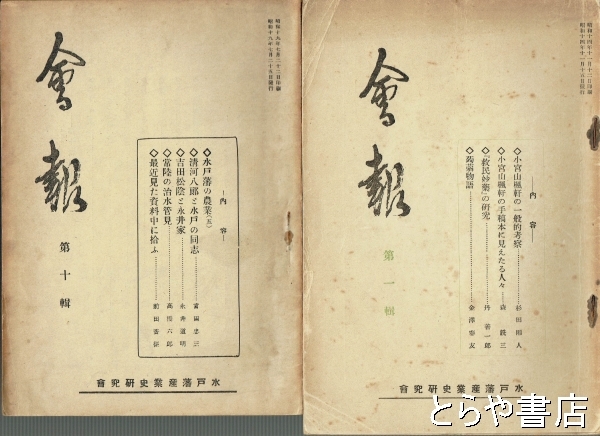 會報
第十輯
昭和十八年七月二十五日發行
―内容―
◇水戸藩の農業(五)
◇清河八郎と水戸の同志
◇吉田松陰と永井家
永井道明
◇常陸の治水管見
高橋六郎
◇最近見た資料中に拾ふ
前田香徑
水戸藩産業史研究會
昭和十四年十一月十二日印刷
昭和十四年十一月十五日發行
會報
第一輯
―内容―
◇小宮山楓軒の一般的考察
◇小宮山楓軒の手稿本に見えたる人々
森銑三
◇『救民妙藥』の研究
◇蒟蒻物語
水戸藩産業史研究會
とらや書店